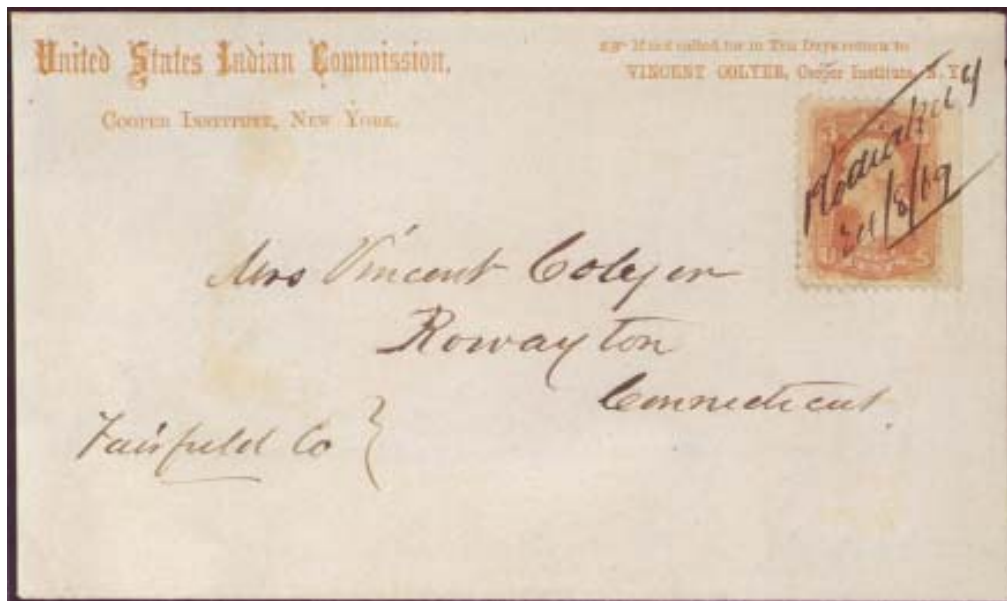 United States Indian Commission.
COOPER INSTITUTE, NEW YORK.
If not called for in Ten Days return to
VINCENT COLYER, Cooper Institute, N. Y.
Mrs Vincent Colyer
Rowayton
Connecticut.
Fairfield Co